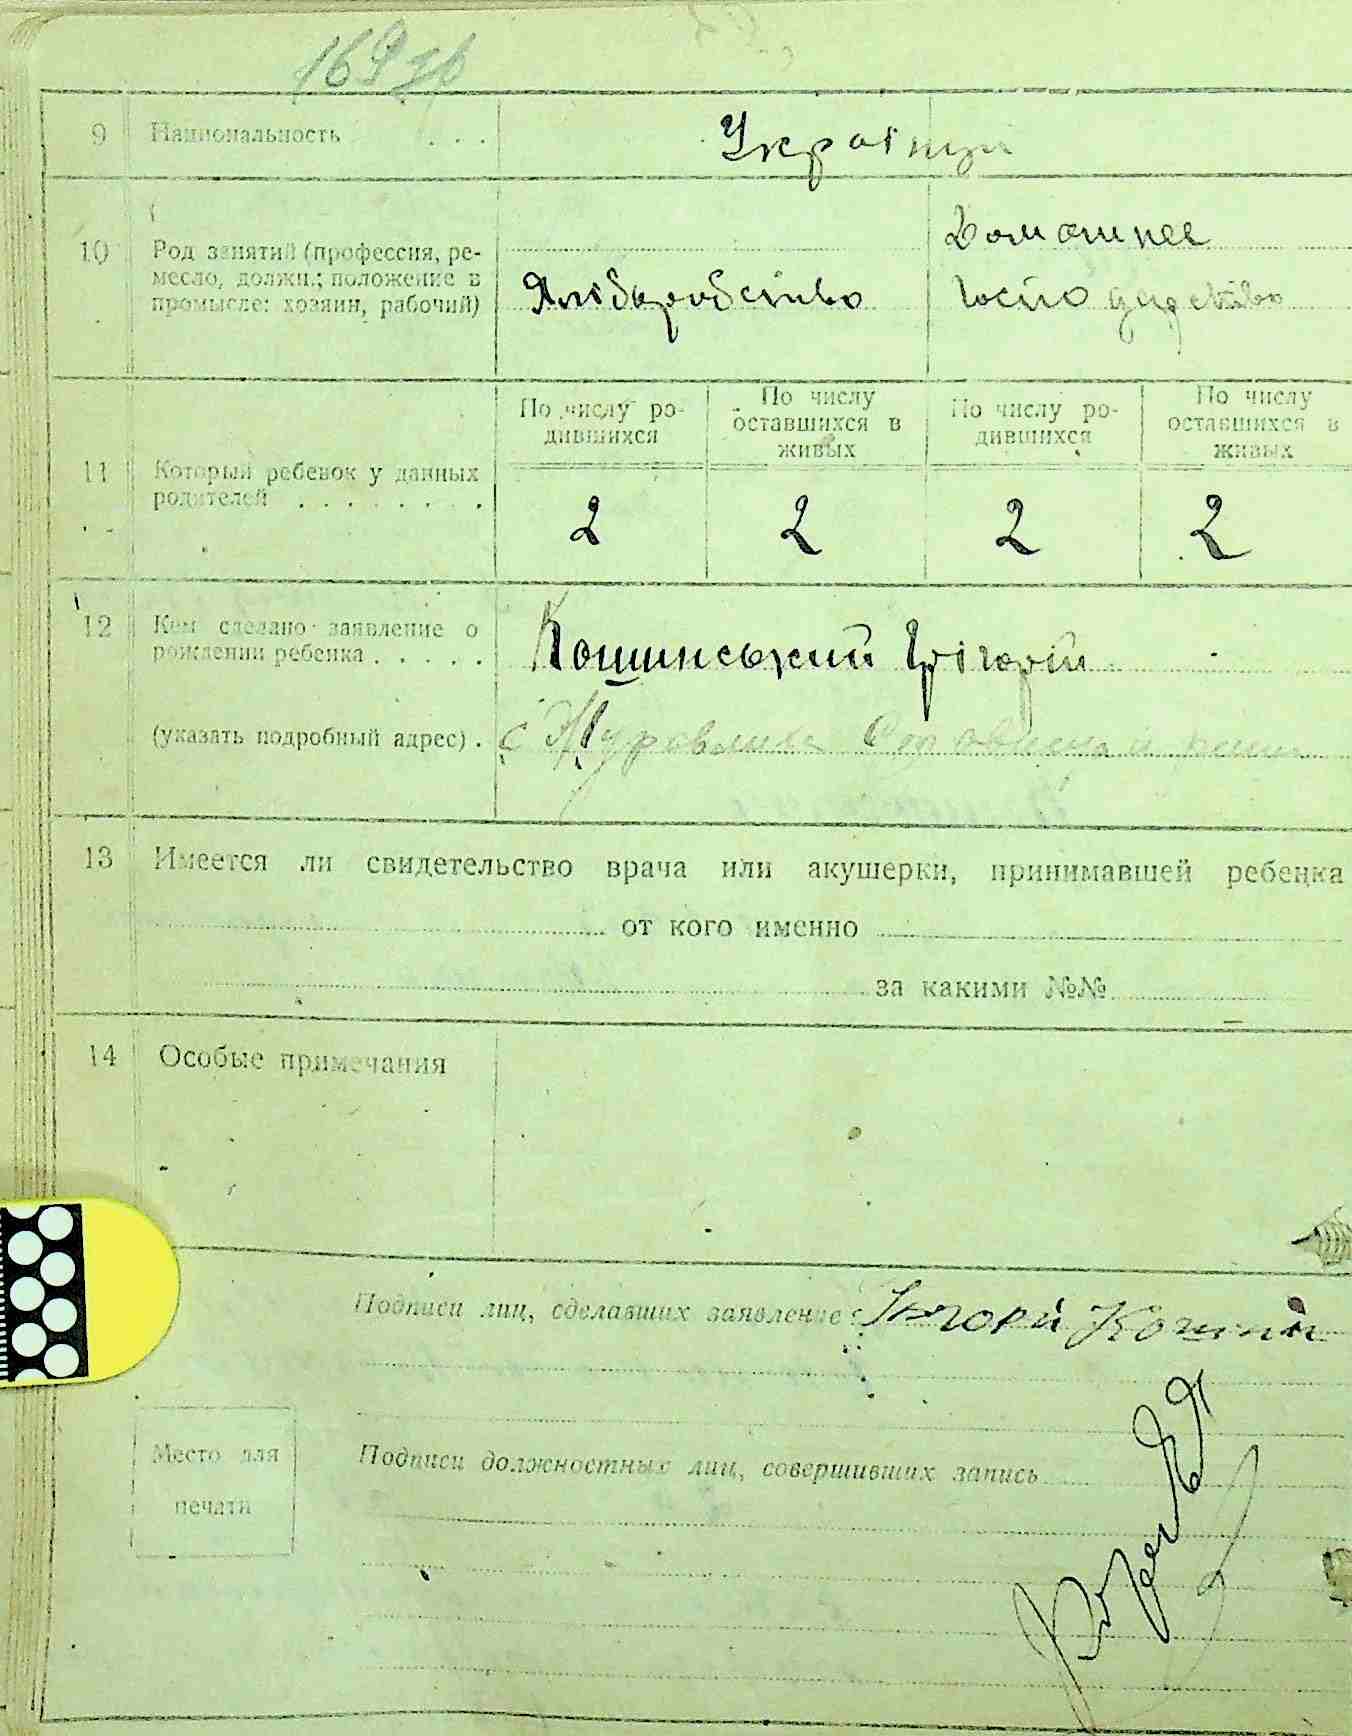 169 зв
9 Национальность . . . Українці
10 Род занятий (профессия, ре-
месло, должн.; положение в
промысле: хозяин, рабочий)
Хліборобство
Домашнее
господарство
11 Который ребенок у данных
родителей . . . . . . . .
По числу ро-
дившихся
По числу
оставшихся в
живых
По числу ро-
дившихся
По числу
оставшихся в
живых
2 2 2 2
12 Кем сделано заявление о
рождении ребенка . . . . .
Кошинський Григорій
(указать подробный адрес) . с Журавлинка
13 Имеется ли свидетельство врача или акушерки, принимавшей ребенка
от кого именно
за какими №№
14 Особые примечания
Подписи лиц, сделавших заявление:
Место для
печати
Подписи должностных лиц, совершивших запись